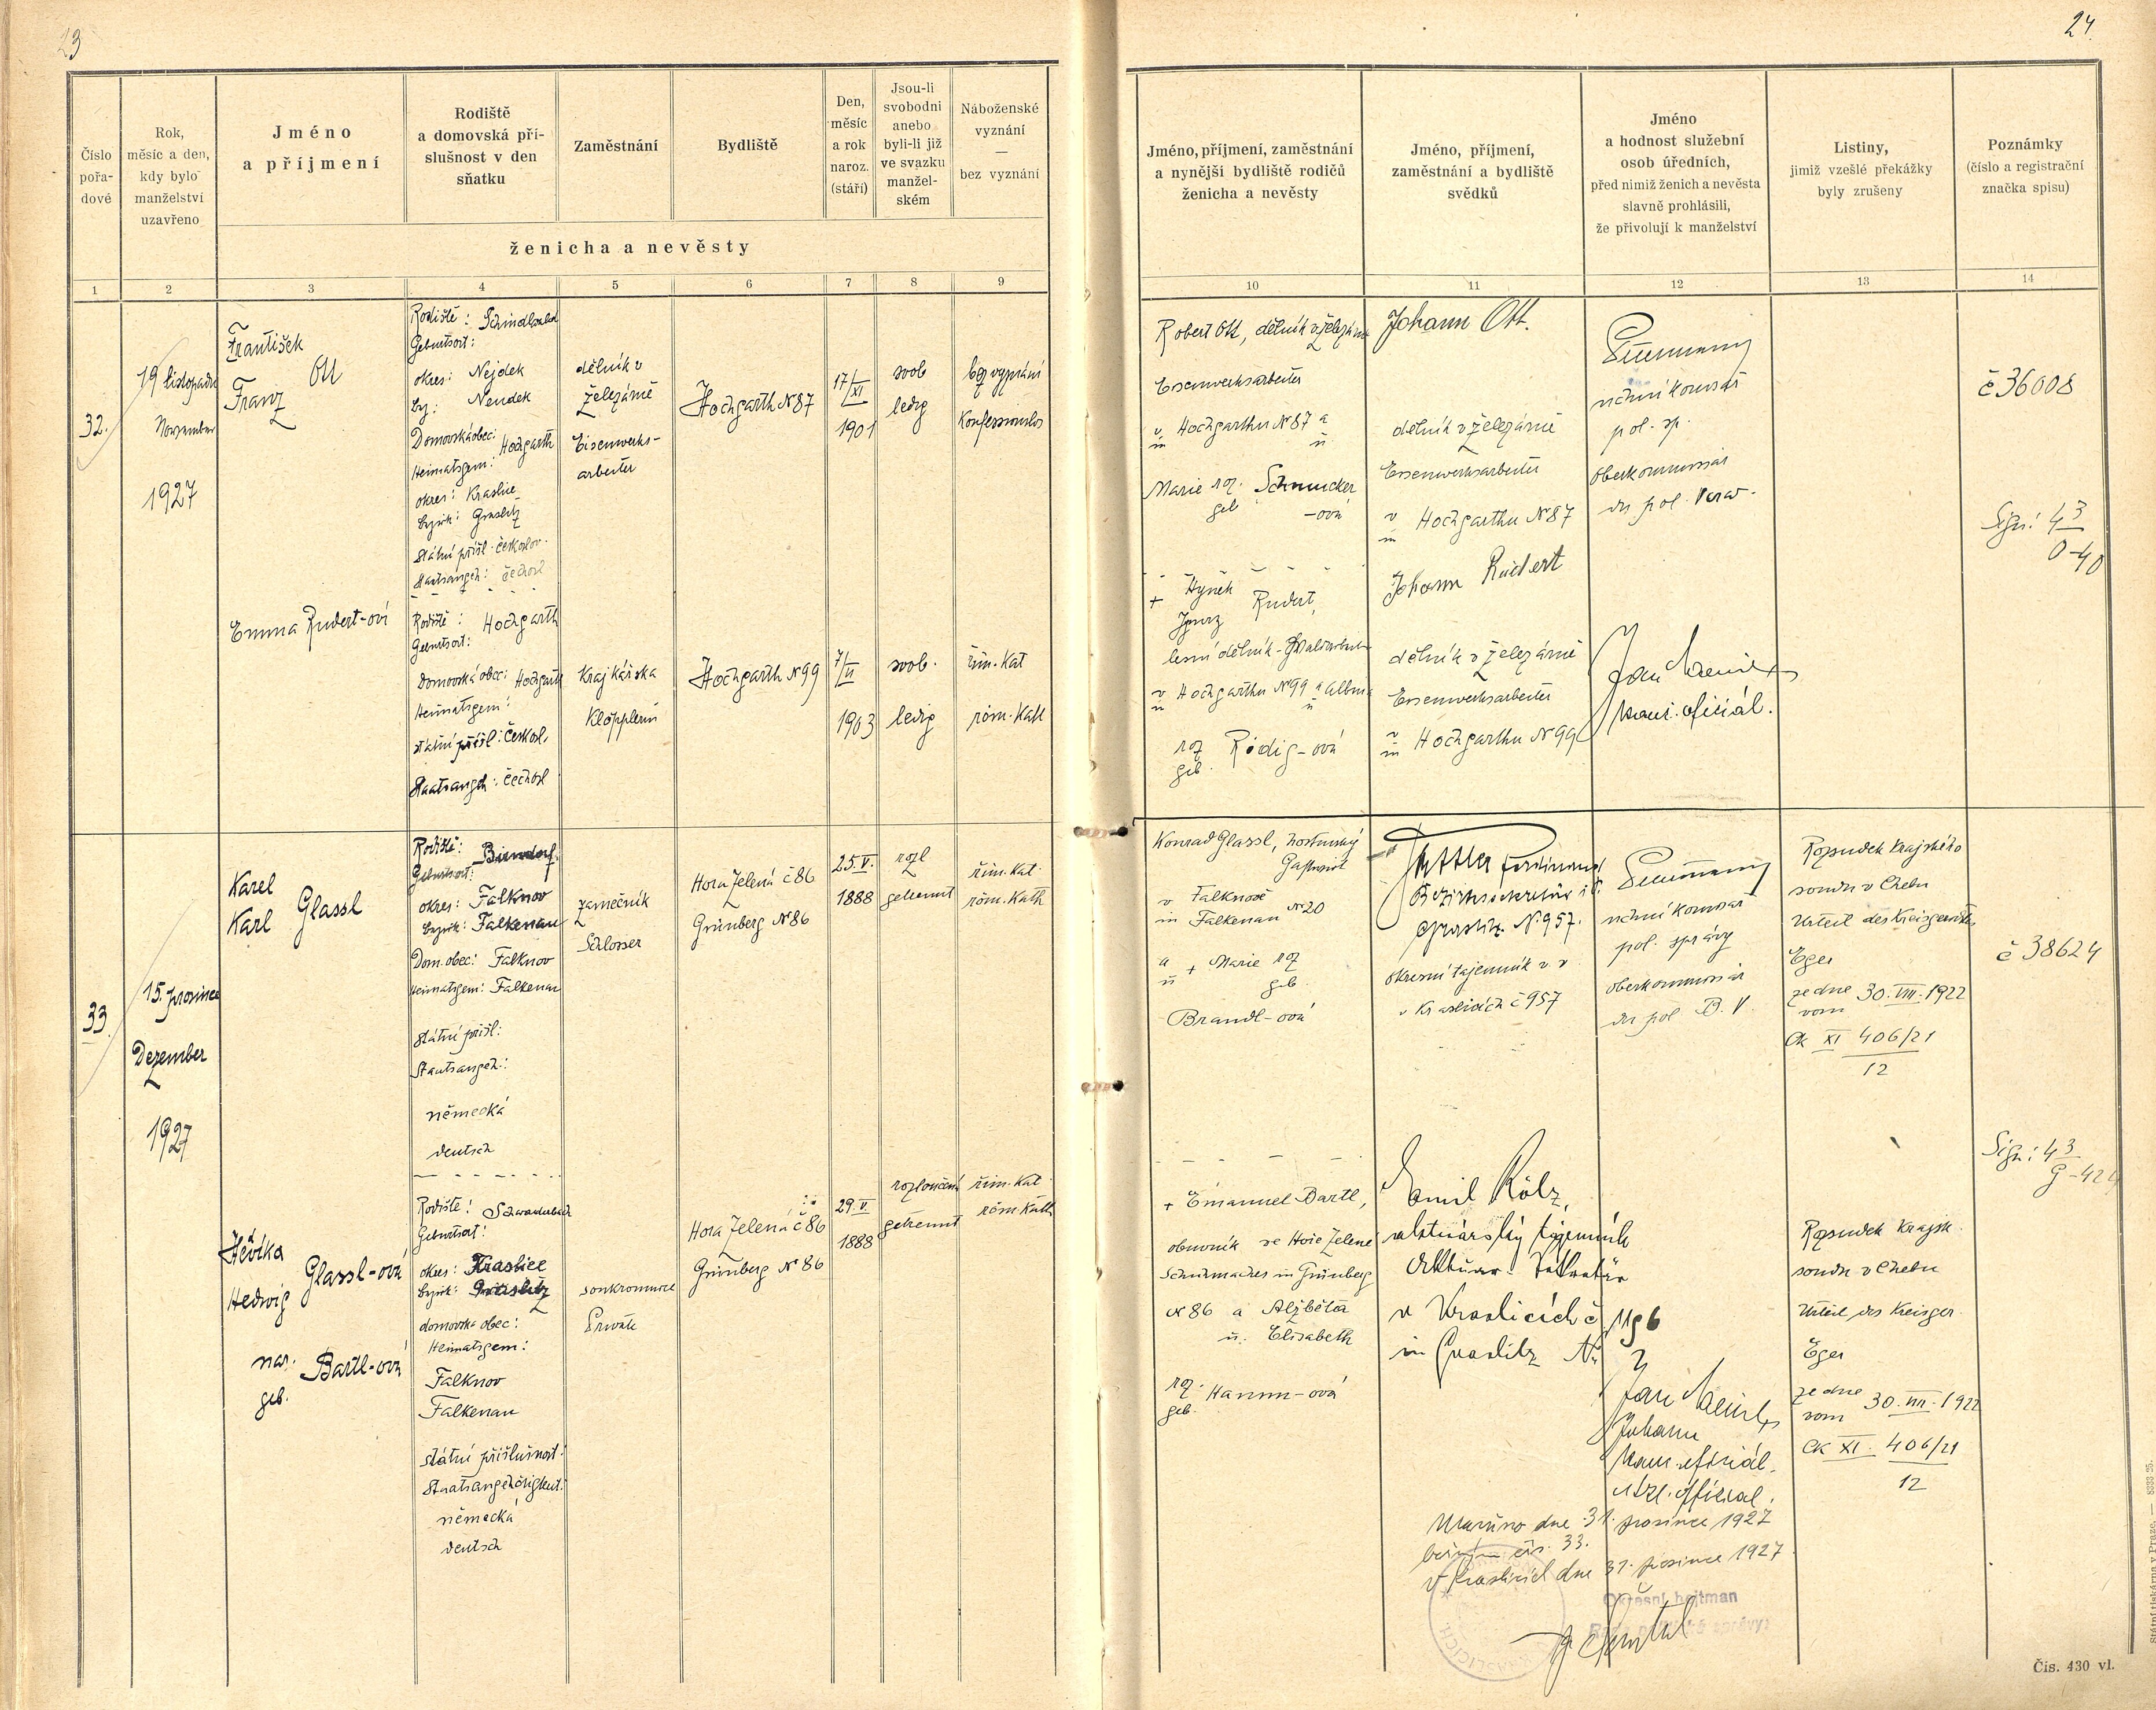 23
24
Číslo pořa- dové
Rok, měsíc a den, kdy bylo manželství uzavřeno
Jméno a příjmení
Rodiště a domovská pří- slušnost v den sňatku
Zaměstnání
Bydliště
Den, měsíc a rok naroz. (stáří)
Jsou-li svobodni anebo byli-li již ve svazku manžel- ském
Náboženské vyznání — bez vyznání
ženicha a nevěsty
Jméno, příjmení, zaměstnání a nynější bydliště rodičů ženicha a nevěsty
Jméno, příjmení, zaměstnání a bydliště svědků
Jméno a hodnost služební osob úředních, před nimiž ženich a nevěsta slavně prohlásili, že přivolují k manželství
Listiny, jimiž vzešlé překážky byly zrušeny
Poznámky (číslo a registrační značka spisu)
1 2 3 4 5 6 7 8 9 10 11 12 13 14
32.
19 listopadu
November
1927
František
Franz
Ott
Rodiště: Schindlwald
Geburtsort:
okres: Nejdek
bz: Neudek
Domovská obec:
Heimatsgem: Hochgarth
okres: Kraslice
bezirk: Graslitz
státní přísl. českoslov.
Staatsangeh: čechosl
dělník v
železárně
Eisenwerks-
arbeiter
Hochgarth № 87
17/XI
1901
svob
ledig
bez vyznání
Konfessionslos
Robert Ott, dělník v železárně
Eisenwerksarbeiter
v
in Hochgarthu № 87 a
u
Marie roz. Schmucker
geb -ová
Johann Ott.
dělník v železárně
Eisenwerksarbeiter
v
in Hochgarthu № 87
vrchní komisař
pol. sp.
Oberkommissär
der pol. Verw.
č 36008
Sign: 43
0-40
Emma Rudert-ová
Rodiště: Hochgarth
Geburtsort:
Domovská obec: Hochgarth
Heimatsgem:
státní přísl: českosl.
Staatsangeh: čechosl
Krajkářska
Klöpplerin
Hochgarth № 99
7/II
1903
svob.
ledig
řím. kat
röm. Kath
+ Hynek
Ignaz Rudert,
lesní dělník - Waldarbeiter
v
in Hochgarthu № 99 a Albina
u
roz
geb. Rödig-ová
Johann Rudert
dělník v železárně
Eisenwerksarbeiter
v
in Hochgarthu № 99
kanc. oficiál.
33.
15. prosince
Dezember
1927
Karel
Karl
Glassl
Rodiště:
Geburtsort:
okres: Falknov
bezirk: Falkenau
Dom. obec: Falknov
Heimatsgem: Falkenau
Státní přísl:
Staatsangeh.:
německá
deutsch
zámečník
Schlosser
Hora Zelená č 86
Grünberg № 86
25 V.
1888
rozl
getrennt
řím. kat.
röm. Kath
Konrad Glassl, hostinský
Gastwirt
v Falknově
in Falkenau № 20
a
u + Marie roz
geb.
Brandl-ová
Ferdinand
Bezirkssekretär i. R.
Graslitz № 957.
okresní tajemník v v
v Kraslicích č 957
vrchní komisař
pol. správy
Oberkommissär
der pol. B. V.
Rozsudek krajského
soudu v Chebu
Urteil des Kreisgerichtes
Eger
ze dne
vom 30. VIII. 1922
Ck XI 406/21
12
č 38624
Sign: 43
G-424
Hedvika
Hedwig
Glassl-ová
nar.
geb. Bartl-ová
Rodiště: Schwaderbach
Geburtsort:
okres: Kraslice
bezirk: Graslitz
domovska obec:
Heimatsgem:
Falknov
Falkenau
státní příslušnost:
Staatsangehörigkeit:
německá
deutsch
soukromnice
Private
Hora Zelená č 86
Grünberg № 86
29. V.
1888
rozloučená
getrennt
řím. kat.
röm. Kath
+ Emanuel Bartl,
obuvník ve Hoře Zelené
Schuhmacher in Grünberg
№ 86 a Alžběta
u. Elisabeth
roz.
geb. Hamm-ová
Emil Rölz,
aktuárský tajemník
Aktuar-Sekretär
v Kraslicích č 1196
in Graslitz №
Johann
kanc. oficiál.
Kzl. official.
Rozsudek krajsk.
soudu v Chebu
Urteil des Kreisger.
Eger
ze dne
vom 30. VIII. 1922
Ck XI. 406/21
12
Uzavřeno dne 31. prosince 1927
čís. 33.
V Kraslicích dne 31. prosince 1927.
Okresní hejtman
Rada politické správy:
KRASLICÍCH
Státní tiskárna v Praze. — 8333 25.
Čís. 430 vl.